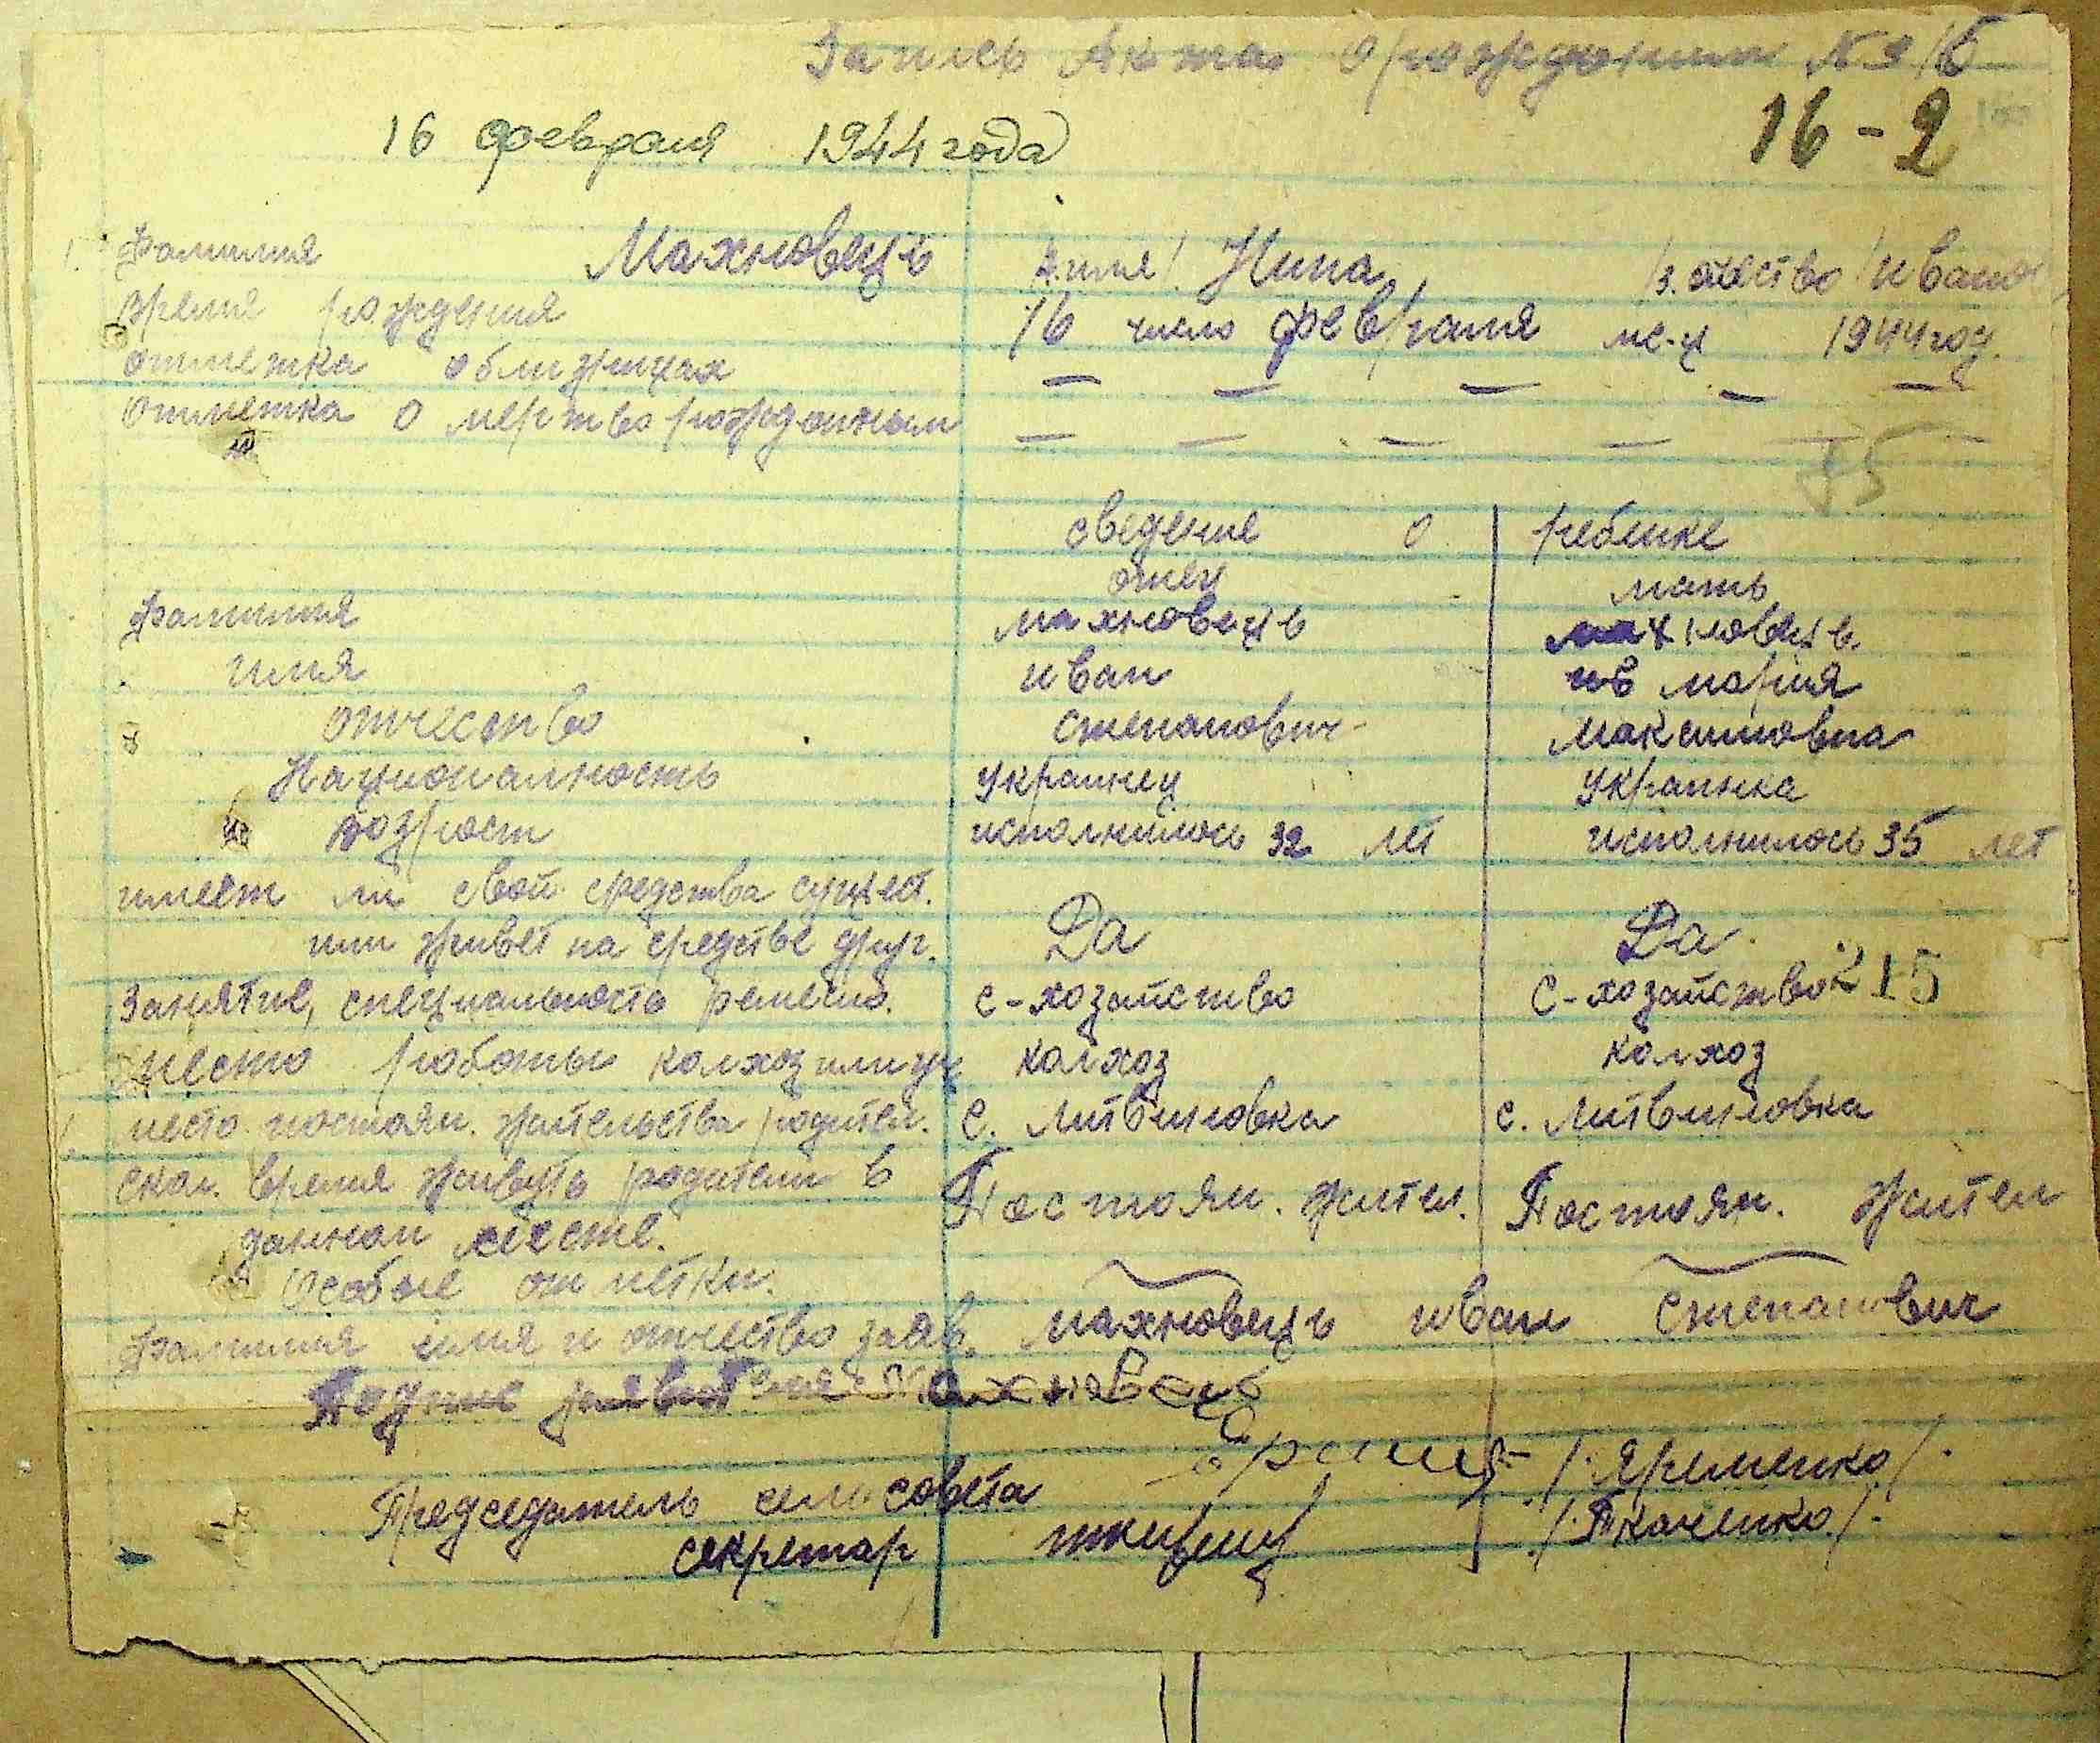 Запись Акта о рождении №
16 - 2
16 февраля 1944 года
1. Фамилия Махновець 2. имя / Нина /3. отчество / Ивано
время рождения 16 число февраля ме-ц 1944 год.
отметка о близнецах — — — — —
отметка о мертворожденном — — — — —
сведение о ребенке
отец мать
Фамилия махновець махновець
имя иван ив мария
отчество степанович максимовна
Национальность украинец украинка
возраст исполнилось 32 лет исполнилось 35 лет
имеет ли свои средства сущест. Да Да.
или живет на средстве друг.
Занятие, специальность ремесло. с-хозайство с-хозайство 215
место работы колхоз или уч колхоз колхоз
место постоян. жительства родител. с. Литвиновка с. Литвиновка
скол. время живуть родители в Постоян. жител. Постоян. жител
данном месте.
Особые отметки.
Фамилия имя и отчество заяв. махновець иван степанович
Махновець
Председатель сельсовета /Яременко/.
секретар /Ткаченко/.